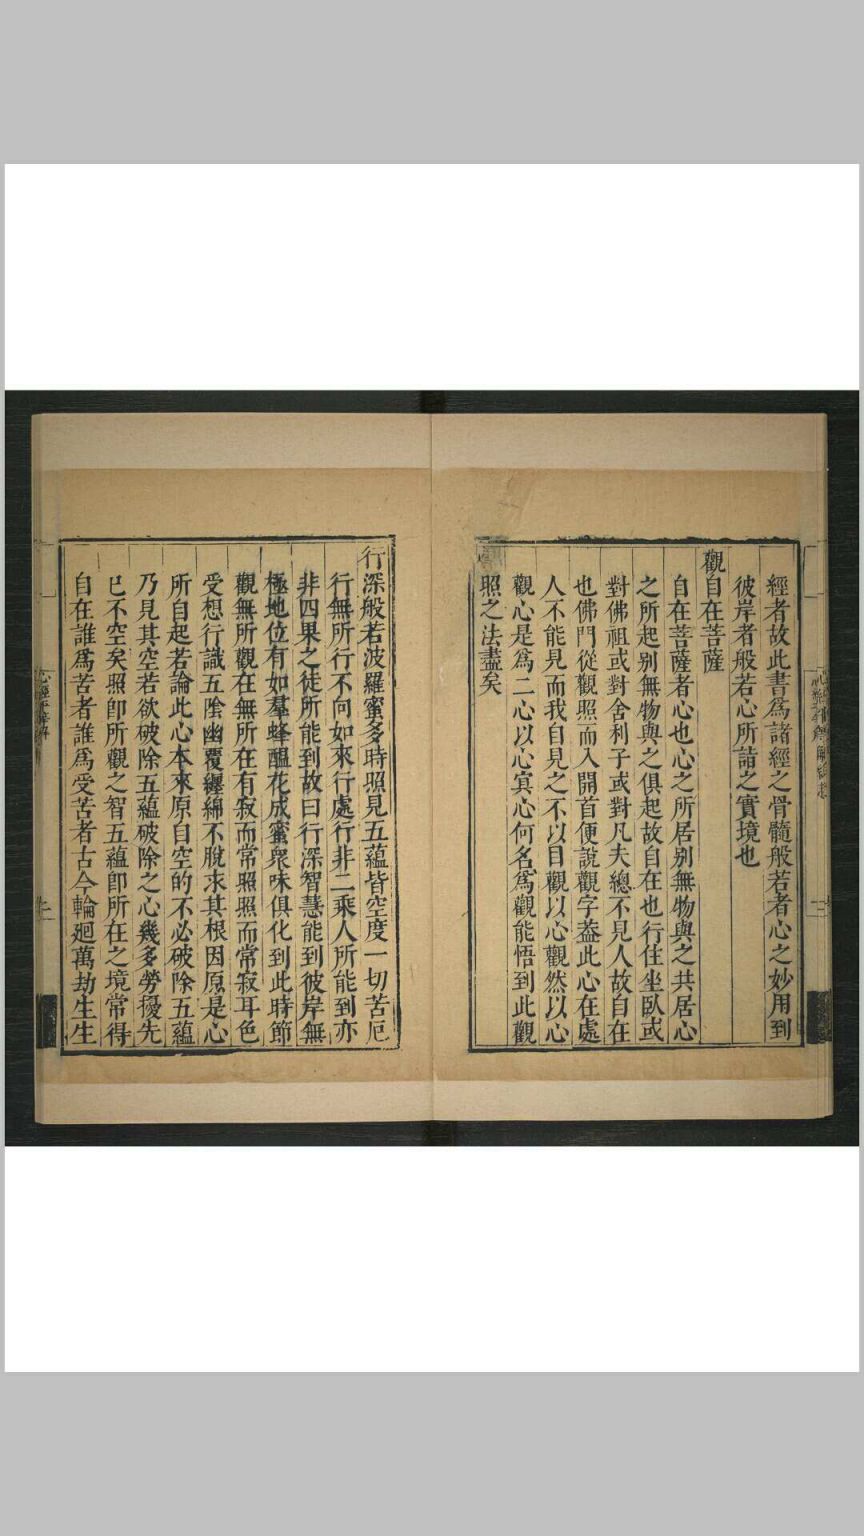 經者故此書爲諸經之骨髓般若者心之妙用到
彼岸者般若心所詣之實境也
觀自在菩薩
自在菩薩者心也心之所居别無物與之共居心
之所起别無物與之俱起故自在也行住坐臥或
對佛祖或對舍利子或對凡夫總不見人故自在
也佛門從觀照而入開首便說觀字葢此心在處
人不能見而我自見之不以目觀以心觀然以心
觀心是爲二心以心寘心何名爲觀能悟到此觀
照之法盡矣
行深般若波羅蜜多時照見五蘊皆空度一切苦厄
行無所行不向如來行處行非二乘人所能到亦
非四果之徒所能到故曰行深智慧能到彼岸無
極地位有如羣蜂醞花成蜜衆味俱化到此時節
觀無所觀在無所在有寂而常照照而常寂耳色
受想行識五陰幽覆纒綿不脫求其根因原是心
所自起若論此心本來原自空的不必破除五蘊
乃見其空若欲破除五蘊破除之心幾多勞擾先
已不空矣照卽所觀之智五蘊卽所在之境常得
自在誰爲苦者誰爲受苦者古今輪廻萬劫生生